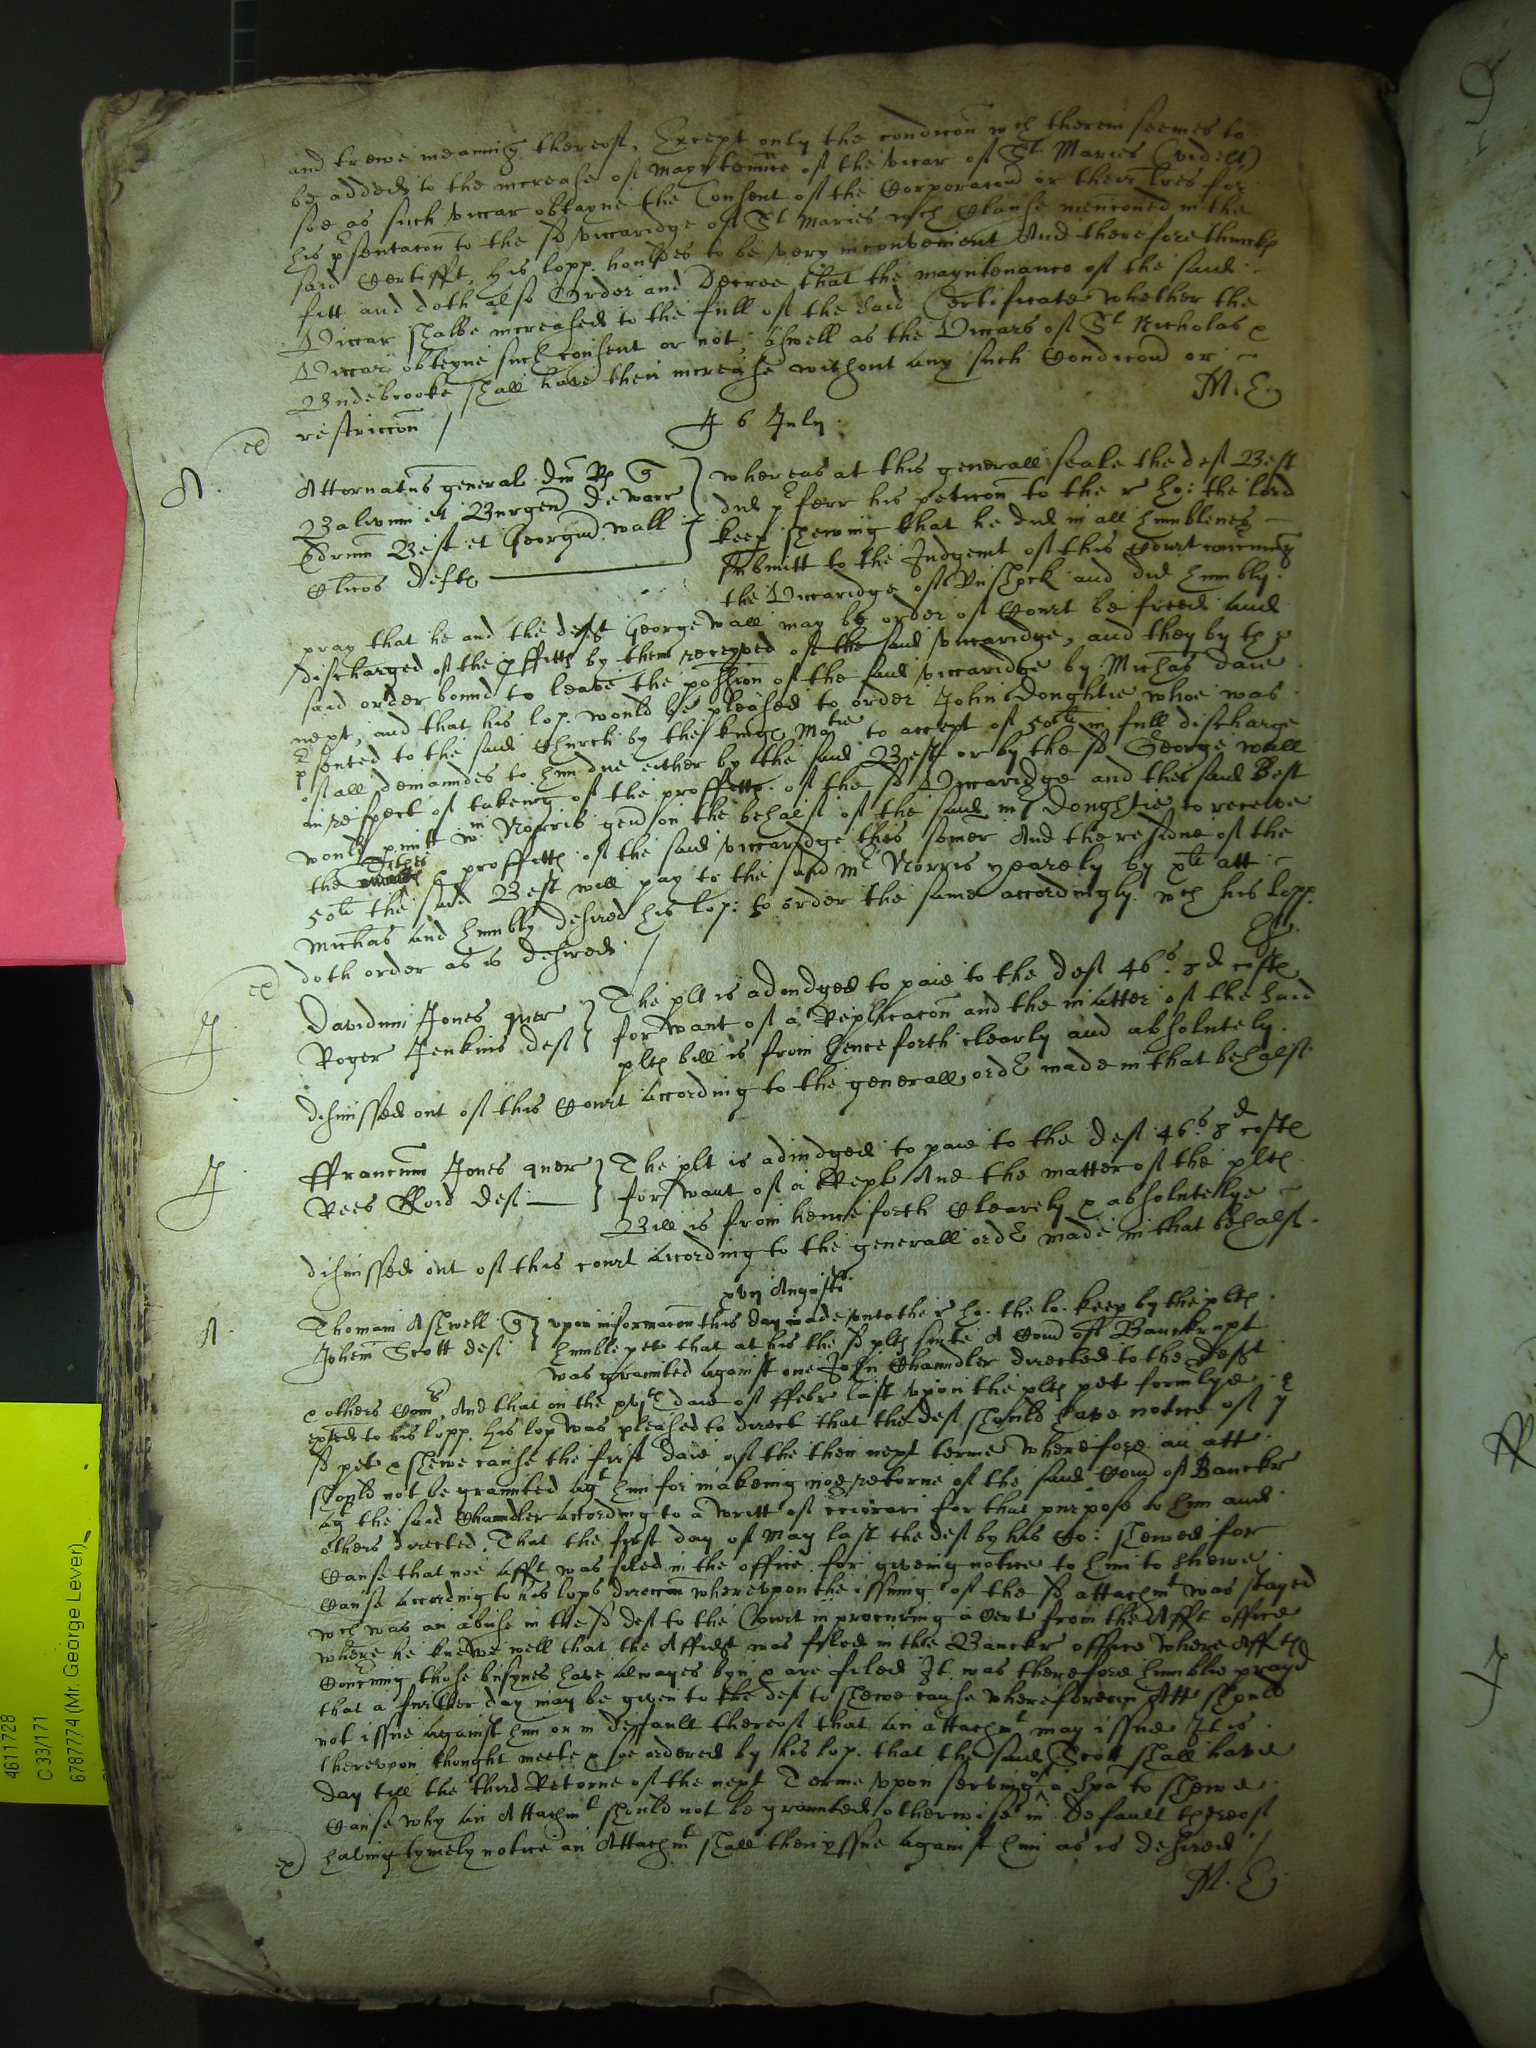 and trewe meaning thereof, Except only the condicon wch therein seemes to
be added to the increase of mayntennce of the vicar of St Maries (vidzt)
soe as such viccar obtayne the Consent of the Corporacon or their lres for
his psentacon to the sd viccaridge of St Maries wch Clause menconed in the
said Certifft. his lopp. houldes to be very inconvenient And therefore thincks
fitt and doth also Order and Decree that the mayntenance of the said
Viccar shalbe increased to the full of the said Certificate whether the
Viccar obteyne such consent or not, aswell as the Viccars of St Nicholas &
Budebrooke shall have their increase without any such Condicon or
restriccon /
M. E.
J 6 July
A.
Attornatus general Dni Rs q
Balivum et Burgen de Warr
Edrum Best et Georgiu Wall
& alios Defts
whereas at this generall seale the deft Best
did pferr his peticon to the r ho: the lord
keep shewing that he did in all humblenes
submitt to the Judgemt of this Court concerning
the Viccaridge of and did humbly
pray that he and the deft George Wall may by order of Court be freed and
discharged of the pffitts by them receyved of the said viccaridge, and they by the
said order bound to leave the possion of the said viccaridge by Michas daie
next, and that his lop. would be pleased to order John Doughtie whoe was
psented to the said Church by the kings Matie to accept of 50li in full discharge
of all demaundes to him due either by the said Best or by the sd George Wall
in respect of takeing of the proffitts of the sd Viccaridge and the said Best
would pmitt Wm Norris gen on the behalf of the said mr Doughtie to receive
the Tithes & proffitts of the said viccaridge this somer And the residue of the
50li the said Best will pay to the said Mr Norris yearely by xli att
Michas and humbly desired his lop: to order the same accordingly. wch his lopp.
doth order as is desired /
J
Davidum Jones quer
Roger Jenkins deft
The plt is adiudged to paie to the deft 46s. 8d costs
for want of a Replicacon and the matter of the said
plts bill is from henceforth clearly and absolutely
dismissed out of this Court according to the generall order made in that behalf.
J
ffrancum Jones quer
Rees deft
The plt is adiudged to paie to the deft 46s 8d costs
for want of a Repl And the matter of the plts
Bill is from henceforth Clearely & absolutelye
dismissed out of this court according to the generall order made in that behalf.
xviij Augusti
A
Thomam Ashwell q
Johem Scott deft
upon informacon this day made unto the r ho. the lo. keep by the plts
humble pet that at his the sd plts suite A Com of Banckrupt
was graunted against one John Chaundler directed to the deft
& others Comrs And that on the xvith daie of ffebr last upon the plts pet formlye
to his lopp. his lop was pleased to direct that the deft should have notice of ye
sd pet & shewe cause the first daie of the then next terme wherefore an att
should not be graunted agt him for makeing noe retorne of the said Com of Banckr
agt the said Chaundler according to a writt of cciorari for that purpose to him and
others directed. That the first day of May last the deft by his Co: shewed for
Cause that noe afft was filed in the office for giveing notice to him to shewe
Cause according to his lops direccon whereupon the issuing of the sd attachmt was stayed
wch was an abuse in the sd deft to the Court in procureing a Cert from the Afft office
where he knewe well that the Affidt was fyled in the Banckr office where Affts
Concning those busynes have alwayes byn & are filed It was therefore humblie prayd
that a further day may be given to the deft to shewe cause wherefore an Att should
not issue against him or in default thereof that an attachmt may issue It is
thereupon thought meete & soe ordered by his lop. that the said Scott shall have
day till the third Retorne of the next Terme upon serving of a Spa to shewe
Cause why an Attachmt should not be graunted otherwise in default thereof
haveing tymely notice an Attachmt shall then yssue against him as is desired /
M. E.
4611728
C 33/171
6787774 (Mr. George Lever)